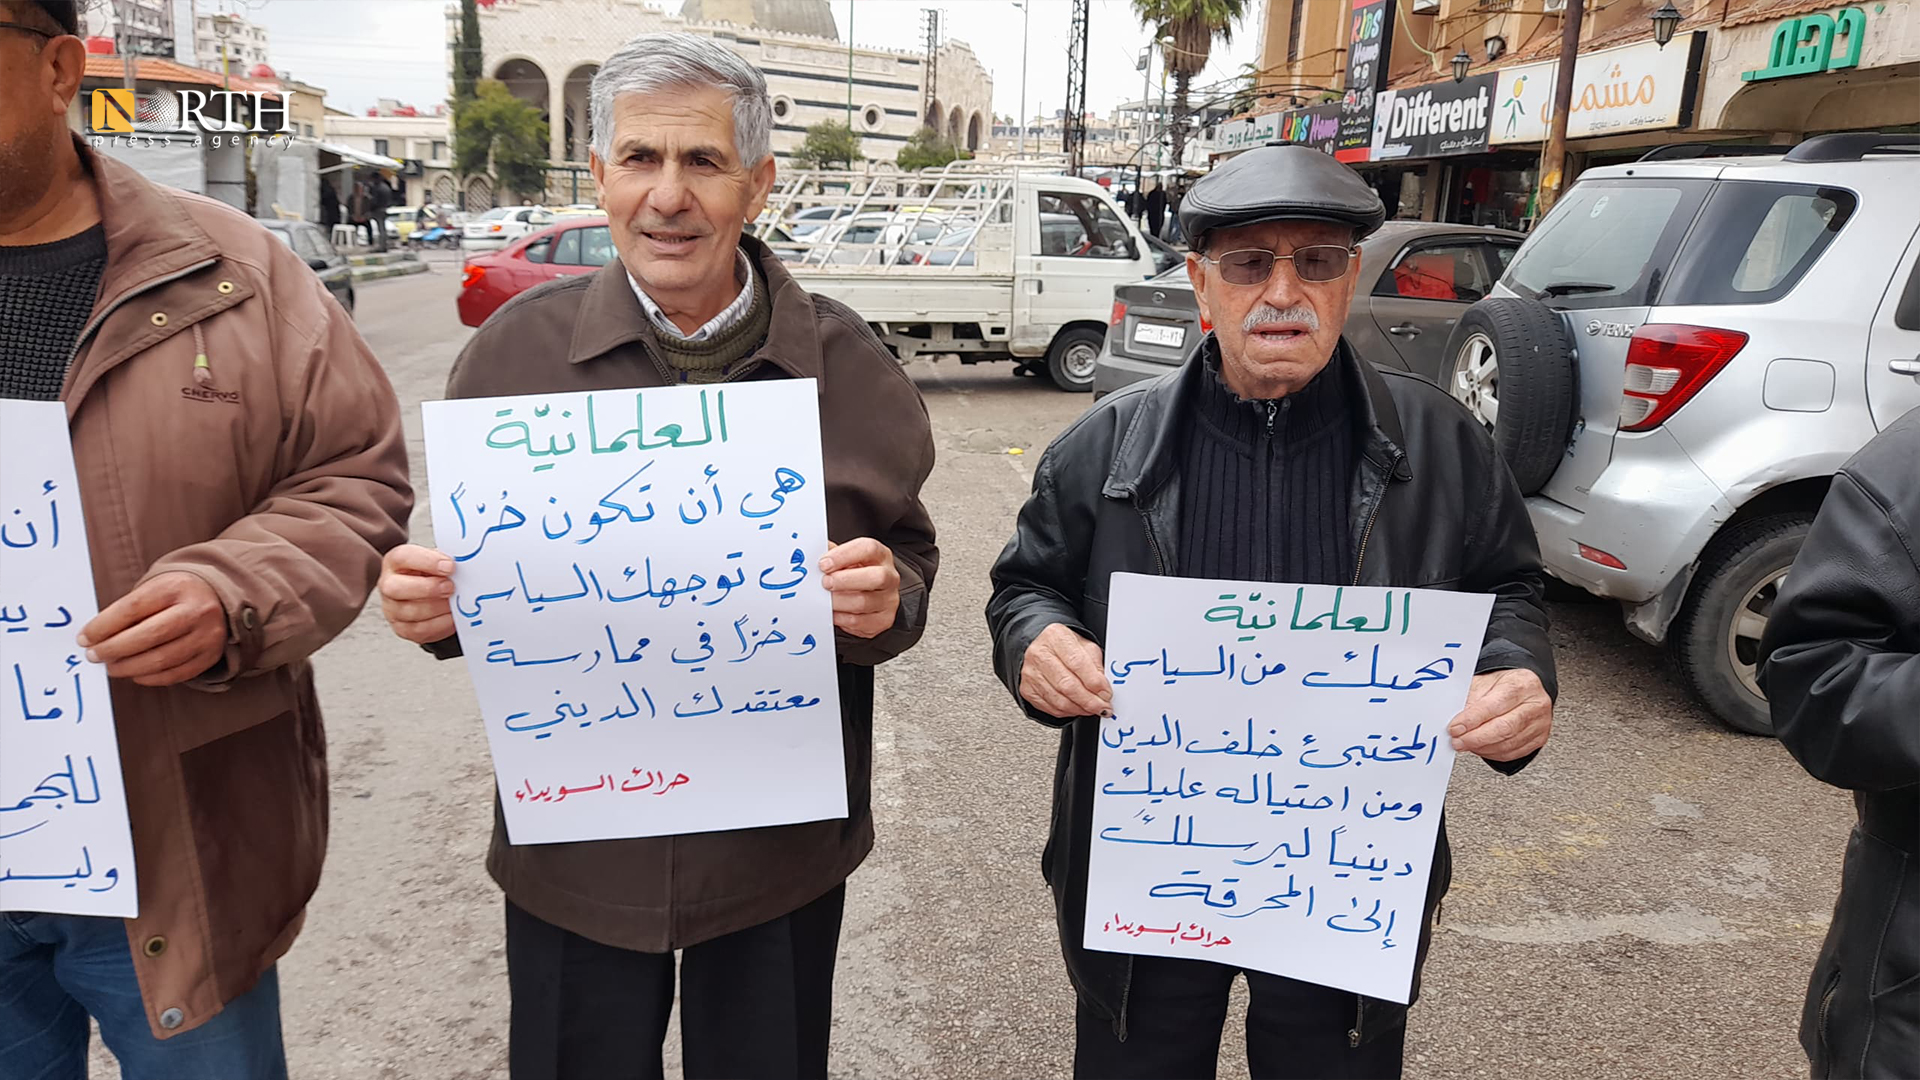 NORTH
press agency
العلمانيّة
هي أن تكون حُرّاً
في توجهك السياسي
وحُرّاً في ممارسة
معتقدك الديني
حراك السويداء
العلمانيّة
تحميك من السياسي
المختبئ خلف الدين
ومن احتياله عليك
دينياً ليرسلكَ
إلى المحرقة
حراك السويداء
أن
أمّا
وليست
CHERVO
KIDS
Home
KIDS Home
Different
مشمش
TERIOS